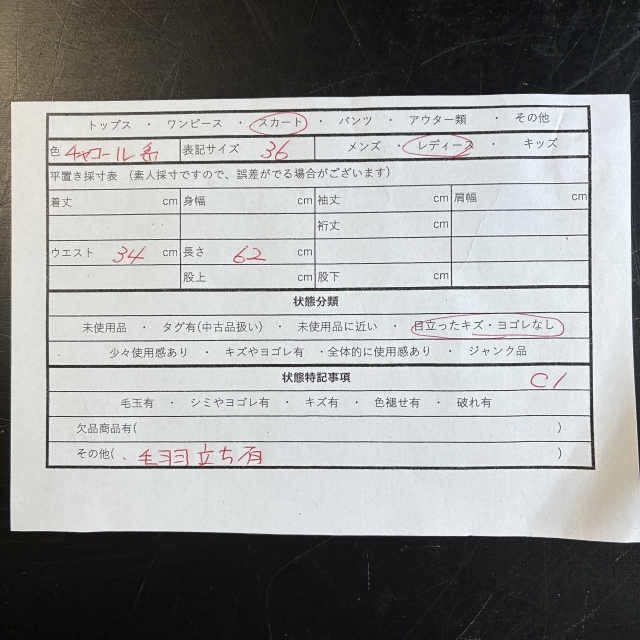 トップス ・ ワンピース ・ スカート ・ パンツ ・ アウター類 ・ その他
色 チャコール系 表記サイズ 36 メンズ ・ レディース ・ キッズ
平置き採寸表 (素人採寸ですので、誤差がでる場合がございます)
着丈 cm 身幅 cm 袖丈 cm 肩幅 cm
裄丈 cm
ウエスト 34 cm 長さ 62 cm
股上 cm 股下 cm
状態分類
未使用品 ・ タグ有(中古品扱い) ・ 未使用品に近い ・ 目立ったキズ・ヨゴレなし
少々使用感あり ・ キズやヨゴレ有 ・全体的に使用感あり ・ ジャンク品
状態特記事項 C1
毛玉有 ・ シミやヨゴレ有 ・ キズ有 ・ 色褪せ有 ・ 破れ有
欠品商品有( )
その他( ・毛羽立ち有 )